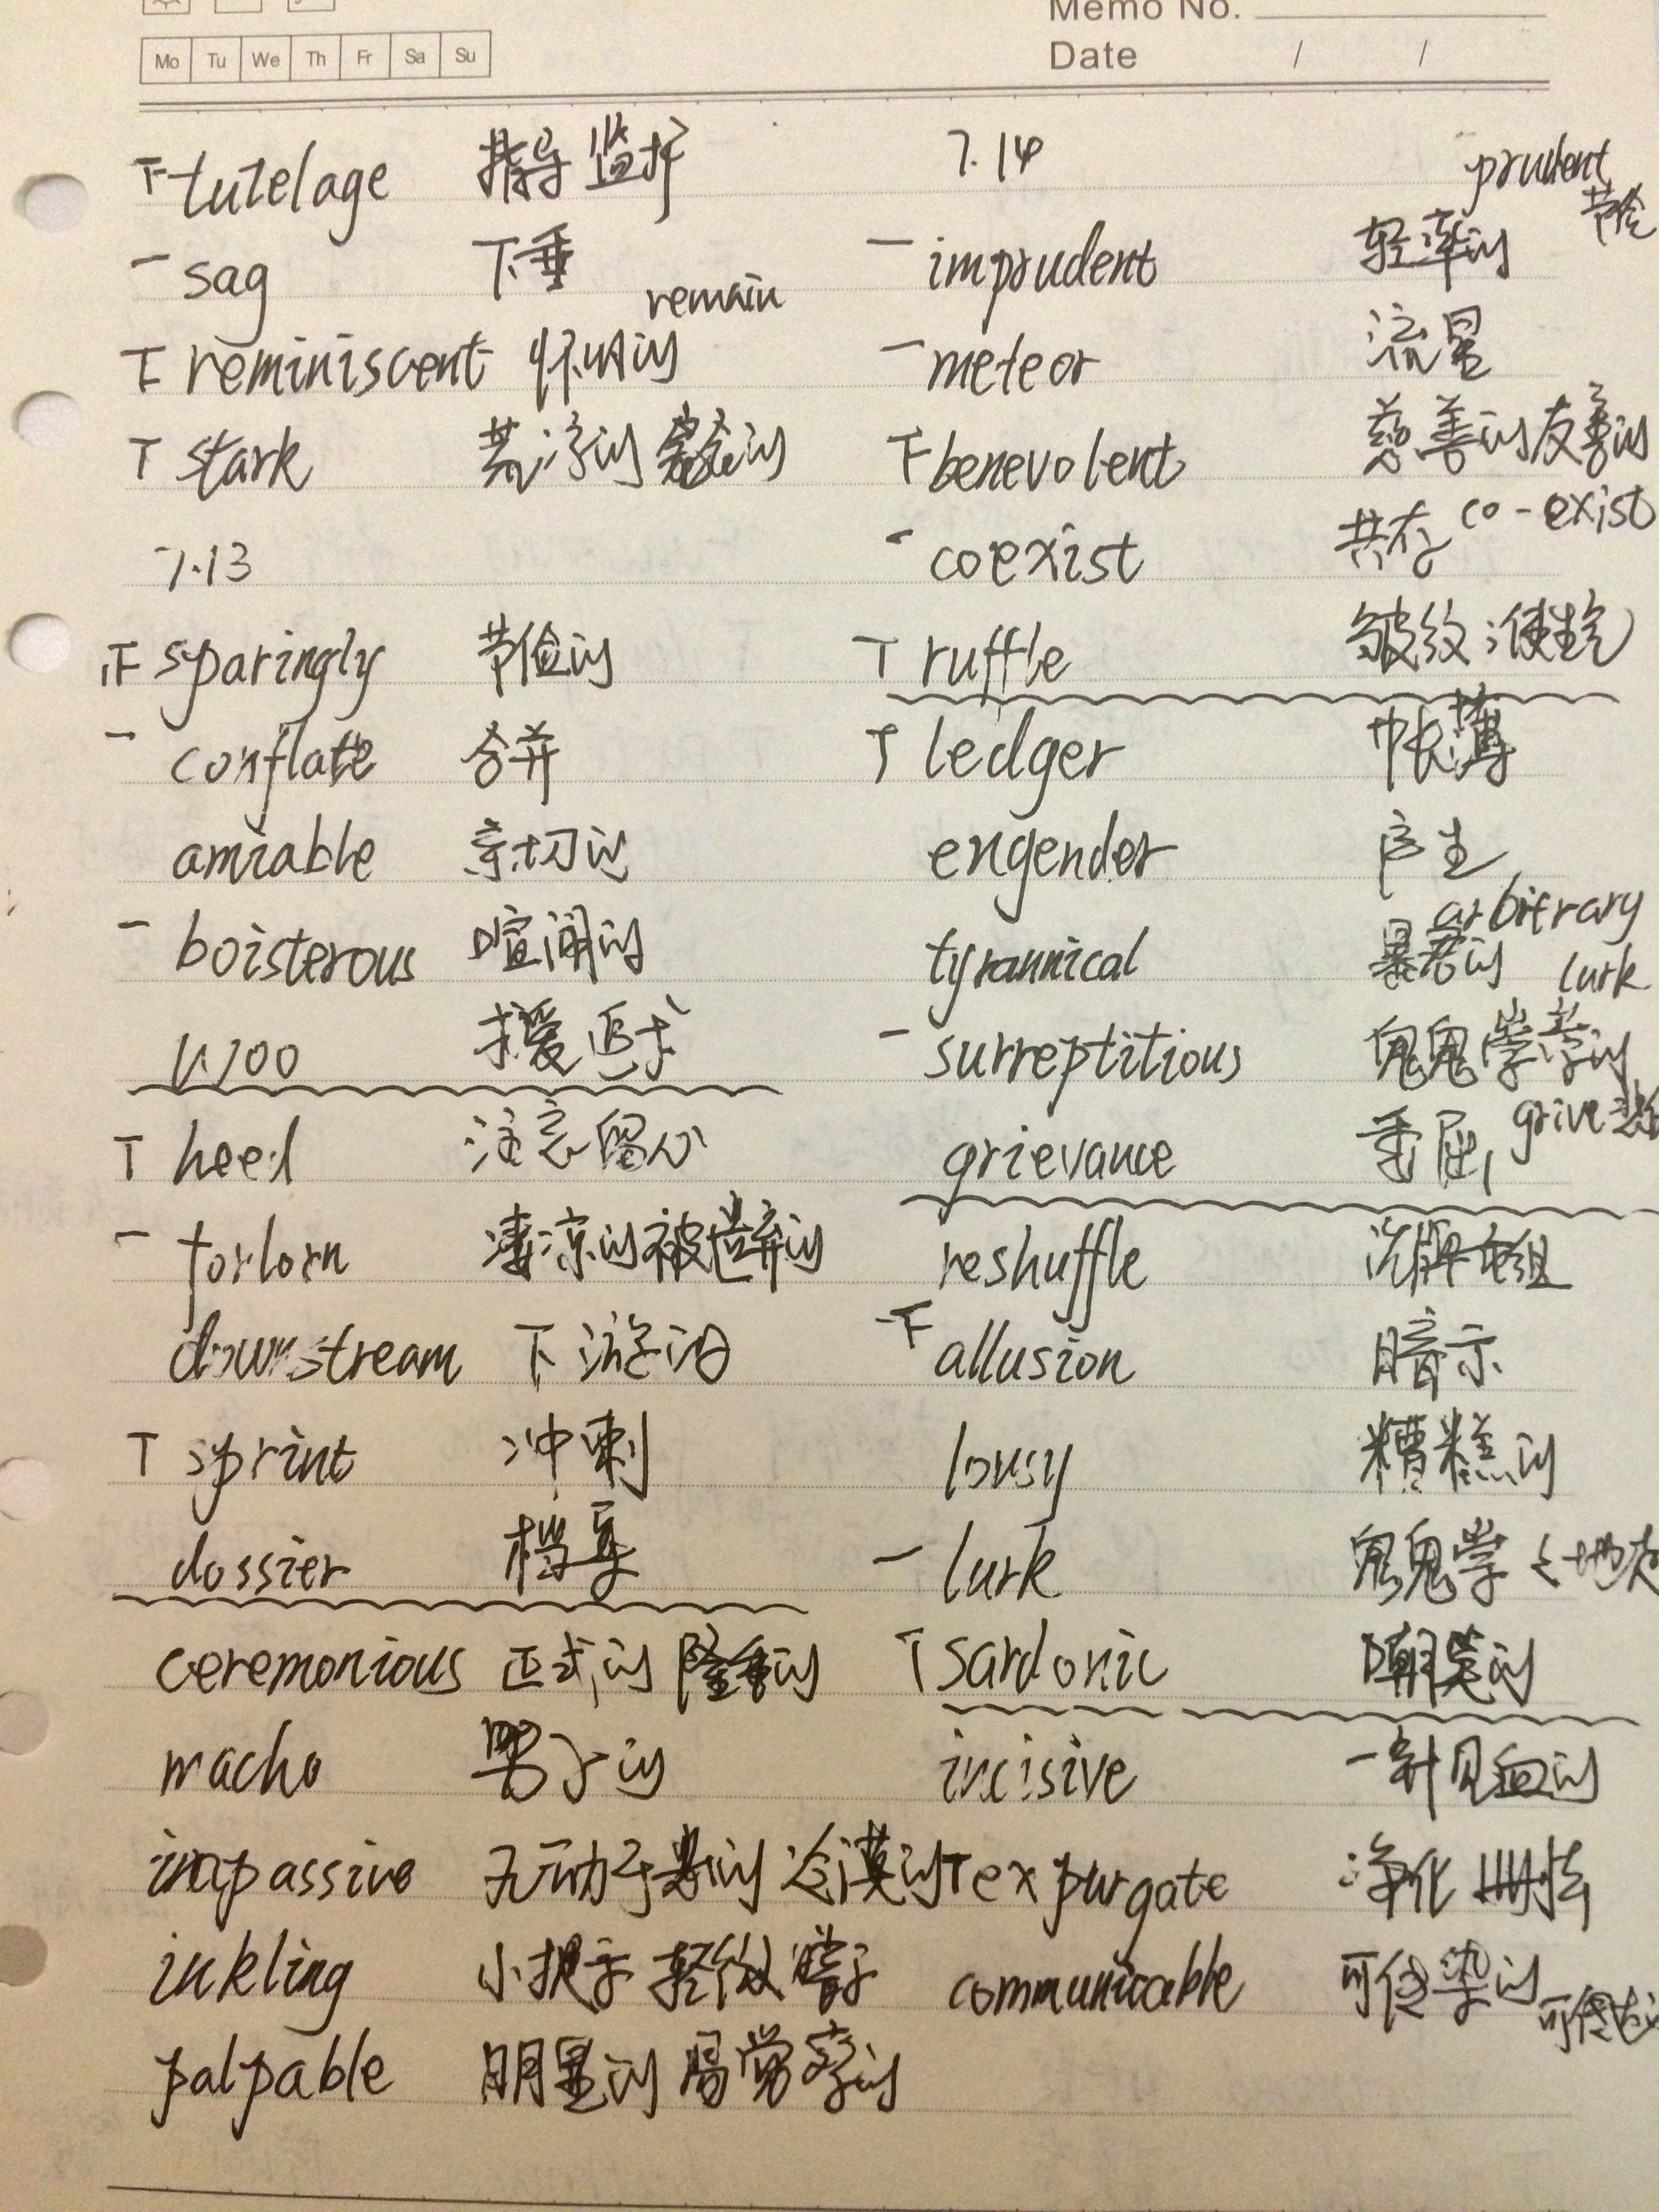 Memo No.
Mo Tu We Th Fr Sa Su
Date / /
tutelage 指导 监护
sag 下垂
remain
reminiscent 怀旧的
stark 荒凉的 完全的
7.13
正 sparingly 节俭的
一 conflate 合并
amiable 亲切的
一 boisterous 喧闹的
woo 求爱 追求
T heed 注意留心
一 forlorn 凄凉的 被遗弃的
downstream 下游的
T sprint 冲刺
dossier 档案
ceremonious 正式的 隆重的
macho 男子的
impassive 无动于衷的 冷漠的
inkling 小提示 轻微暗示
palpable 明显的 易觉察的
7.14
prudent 节俭
一 imprudent 轻率的
一 meteor 流星
benevolent 慈善的 友善的
一 coexist 共存 co-exist
T ruffle 皱纹;使生气
T ledger 帐薄
engender 产生
arbitrary
tyrannical 暴君的
lurk
一 surreptitious 鬼鬼祟祟的
grievance 委屈 grive
reshuffle 洗牌 重组
allusion 暗示
lousy 糟糕的
一 lurk 鬼鬼祟
T sardonic 嘲笑的
incisive 一针见血的
T expurgate 净化 删去
communicable 可传染的